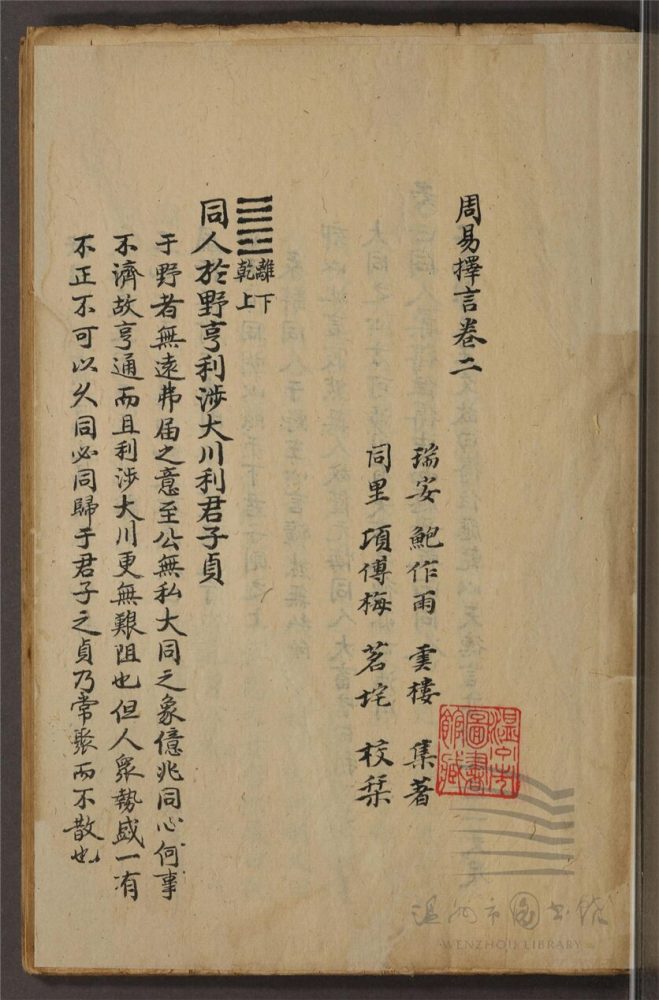 周易擇言卷二
瑞安 鮑作雨 雲樓 集著
同里 項傅梅 茗垞 校栞
離下
乾上
同人於野亨利涉大川利君子貞
于野者無遠弗届之意至公無私大同之象億兆同心何事
不濟故亨通而且利涉大川更無艱阻也但人眾勢盛一有
不正不可以久同必同歸于君子之貞乃常聚而不散也
溫州市圖書館藏
溫州市圖書館
WENZHOU LIBRARY